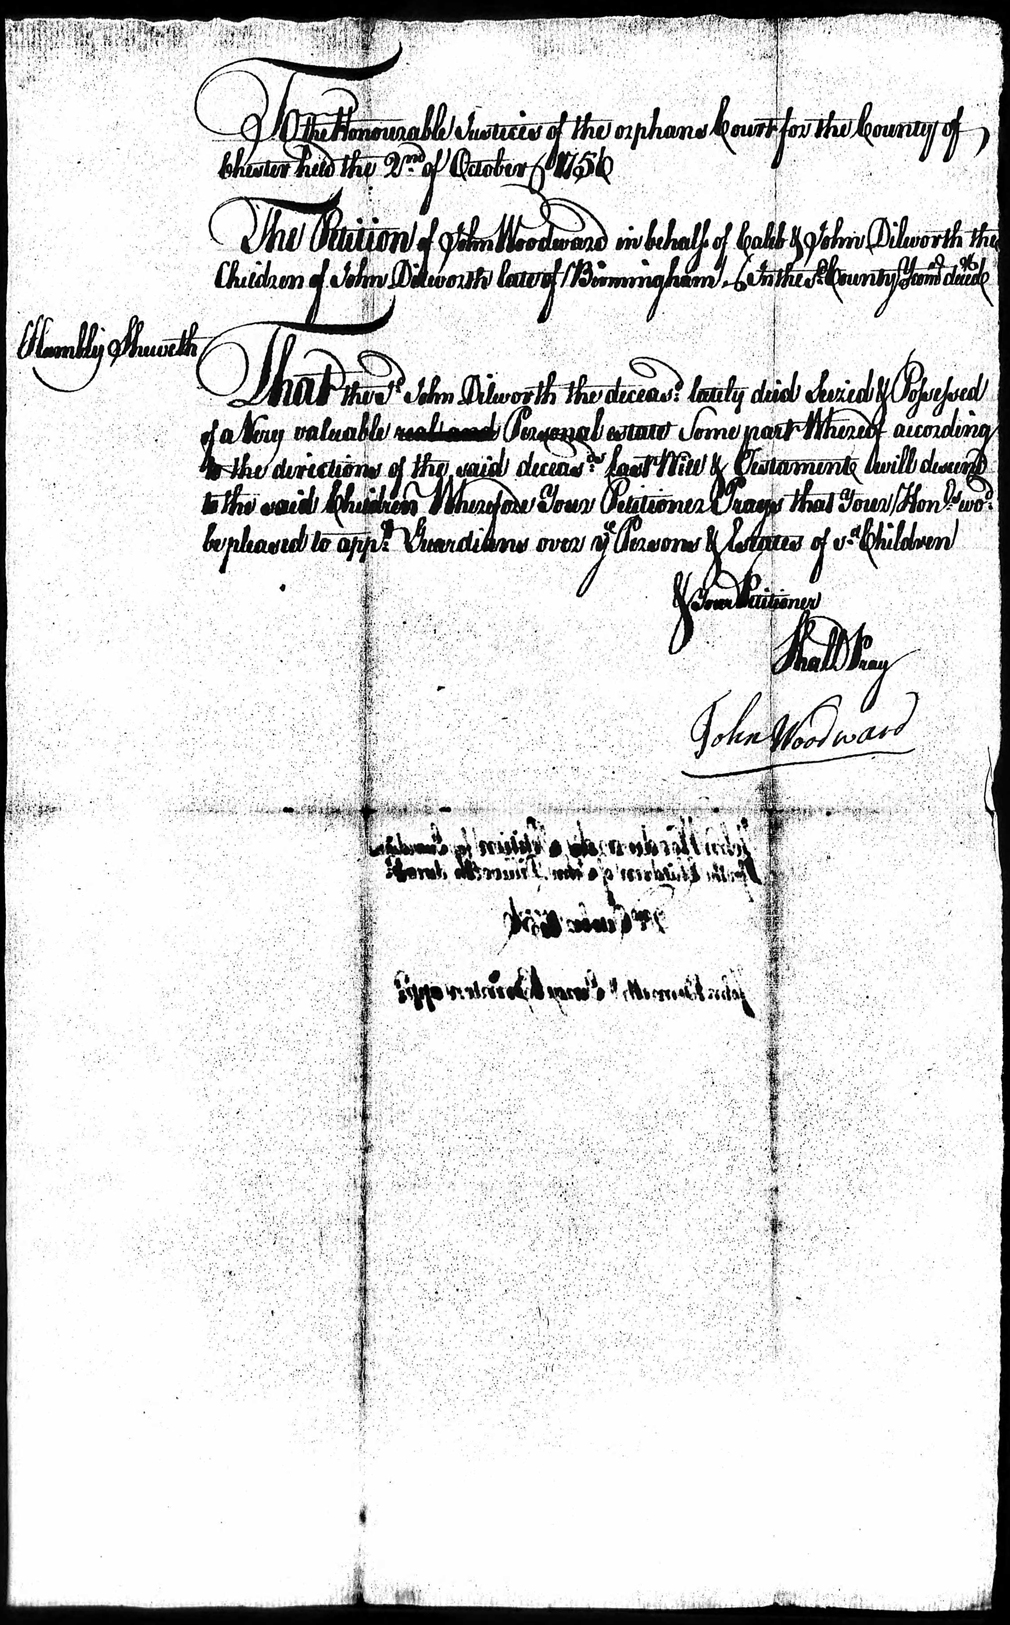 To the Honourable Justices of the orphans Court for the County of
Chester held the 2nd of October 1756
The Petition of John Woodward in behalf of Caleb & John Dilworth the
Children of John Dilworth late of Birmingham In the sd County Yeomn decd
Humbly Sheweth
That the sd John Dilworth the deceasd lately deid Seized & Possessed
of a Very valuable real and Personal estate Some part Whereof according
to the directions of the said deceasds Last Will & Testament will descend
to the said Children Wherefore Your Petitioner Prays that Your Honrs wod
be pleased to appt Guardians over ye Persons & Estates of sd Children
& Your Petitioner
Shall Pray
John Woodward
John Woodward's Petition for Guardians
for the Children of John Dilworth